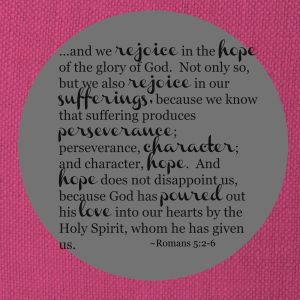 ...and we rejoice in the hope
of the glory of God. Not only so,
but we also rejoice in our
sufferings, because we know
that suffering produces
perseverance;
perseverance, character;
and character, hope. And
hope does not disappoint us,
because God has poured out
his love into our hearts by the
Holy Spirit, whom he has given
us. ~Romans 5:2-6